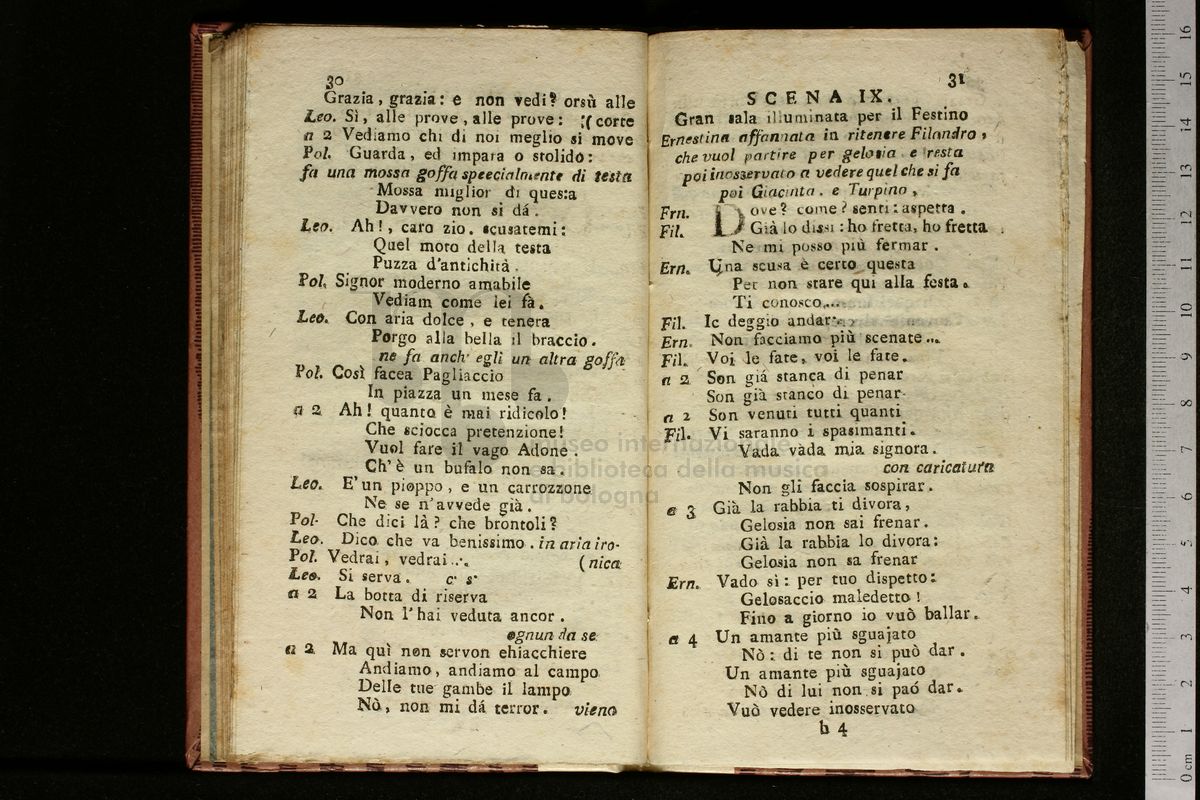 30
Grazia, grazia: e non vedi? orsù alle
Leo. Sì, alle prove, alle prove: (corte
a 2 Vediamo chi di noi meglio si move
Pol. Guarda, ed impara o stolido:
fa una mossa goffa speecialmente di testa
Mossa miglior di questa
Davvero non si dá.
Leo. Ah!, caro zio. scusatemi:
Quel moto della testa
Puzza d'antichità.
Pol. Signor moderno amabile
Vediam come lei fà.
Leo. Con aria dolce, e tenera
Porgo alla bella il braccio.
ne fa anch' egli un altra goffa
Pol. Così facea Pagliaccio
In piazza un mese fa.
a 2 Ah! quanto è mai ridicolo!
Che sciocca pretenzione!
Vuol fare il vago Adone.
Ch'è un bufalo non sa.
Leo. E'un pioppo, e un carrozzone
Ne se n'avvede già.
Pol. Che dici là? che brontoli?
Leo. Dico che va benissimo. in aria iro-
Pol. Vedrai, vedrai... (nica
Leo. Si serva. c' s'
a 2 La botta di riserva
Non l'hai veduta ancor.
ognun da se
a 2 Ma quì non servon ehiacchiere
Andiamo, andiamo al campo
Delle tue gambe il lampo
Nò, non mi dá terror. vieno
31
SCENA IX.
Gran sala illuminata per il Festino
Ernestina affannata in ritenere Filandro,
che vuol partire per gelosia e resta
poi inosservato a vedere quel che si fa
poi Giacinta. e Turpino,
Frn. Dove? come? senti: aspetta.
Fil. Già lo dissi: ho fretta, ho fretta
Ne mi posso più fermar.
Ern. Una scusa è certo questa
Per non stare qui alla festa.
Ti conosco....
Fil. Ic deggio andar...
Ern. Non facciamo più scenate...
Fil. Voi le fate, voi le fate.
a 2 Son giá stanca di penar
Son già stanco di penar
a 2 Son venuti tutti quanti
Fil. Vi saranno i spasimanti.
Vada vàda mia signora.
con caricatura
Non gli faccia sospirar.
a 3 Già la rabbia ti divora,
Gelosia non sai frenar.
Già la rabbia lo divora:
Gelosia non sa frenar
Ern. Vado sì: per tuo dispetto:
Gelosaccio maledetto!
Fino a giorno io vuò ballar.
a 4 Un amante più sguajato
Nò: di te non si può dar.
Un amante più sguajato
Nò di lui non si paó dar.
Vuò vedere inosservato
b 4
museo internazionale
e biblioteca della musica
di bologna
0 cm 1 2 3 4 5 6 7 8 9 10 11 12 13 14 15 16